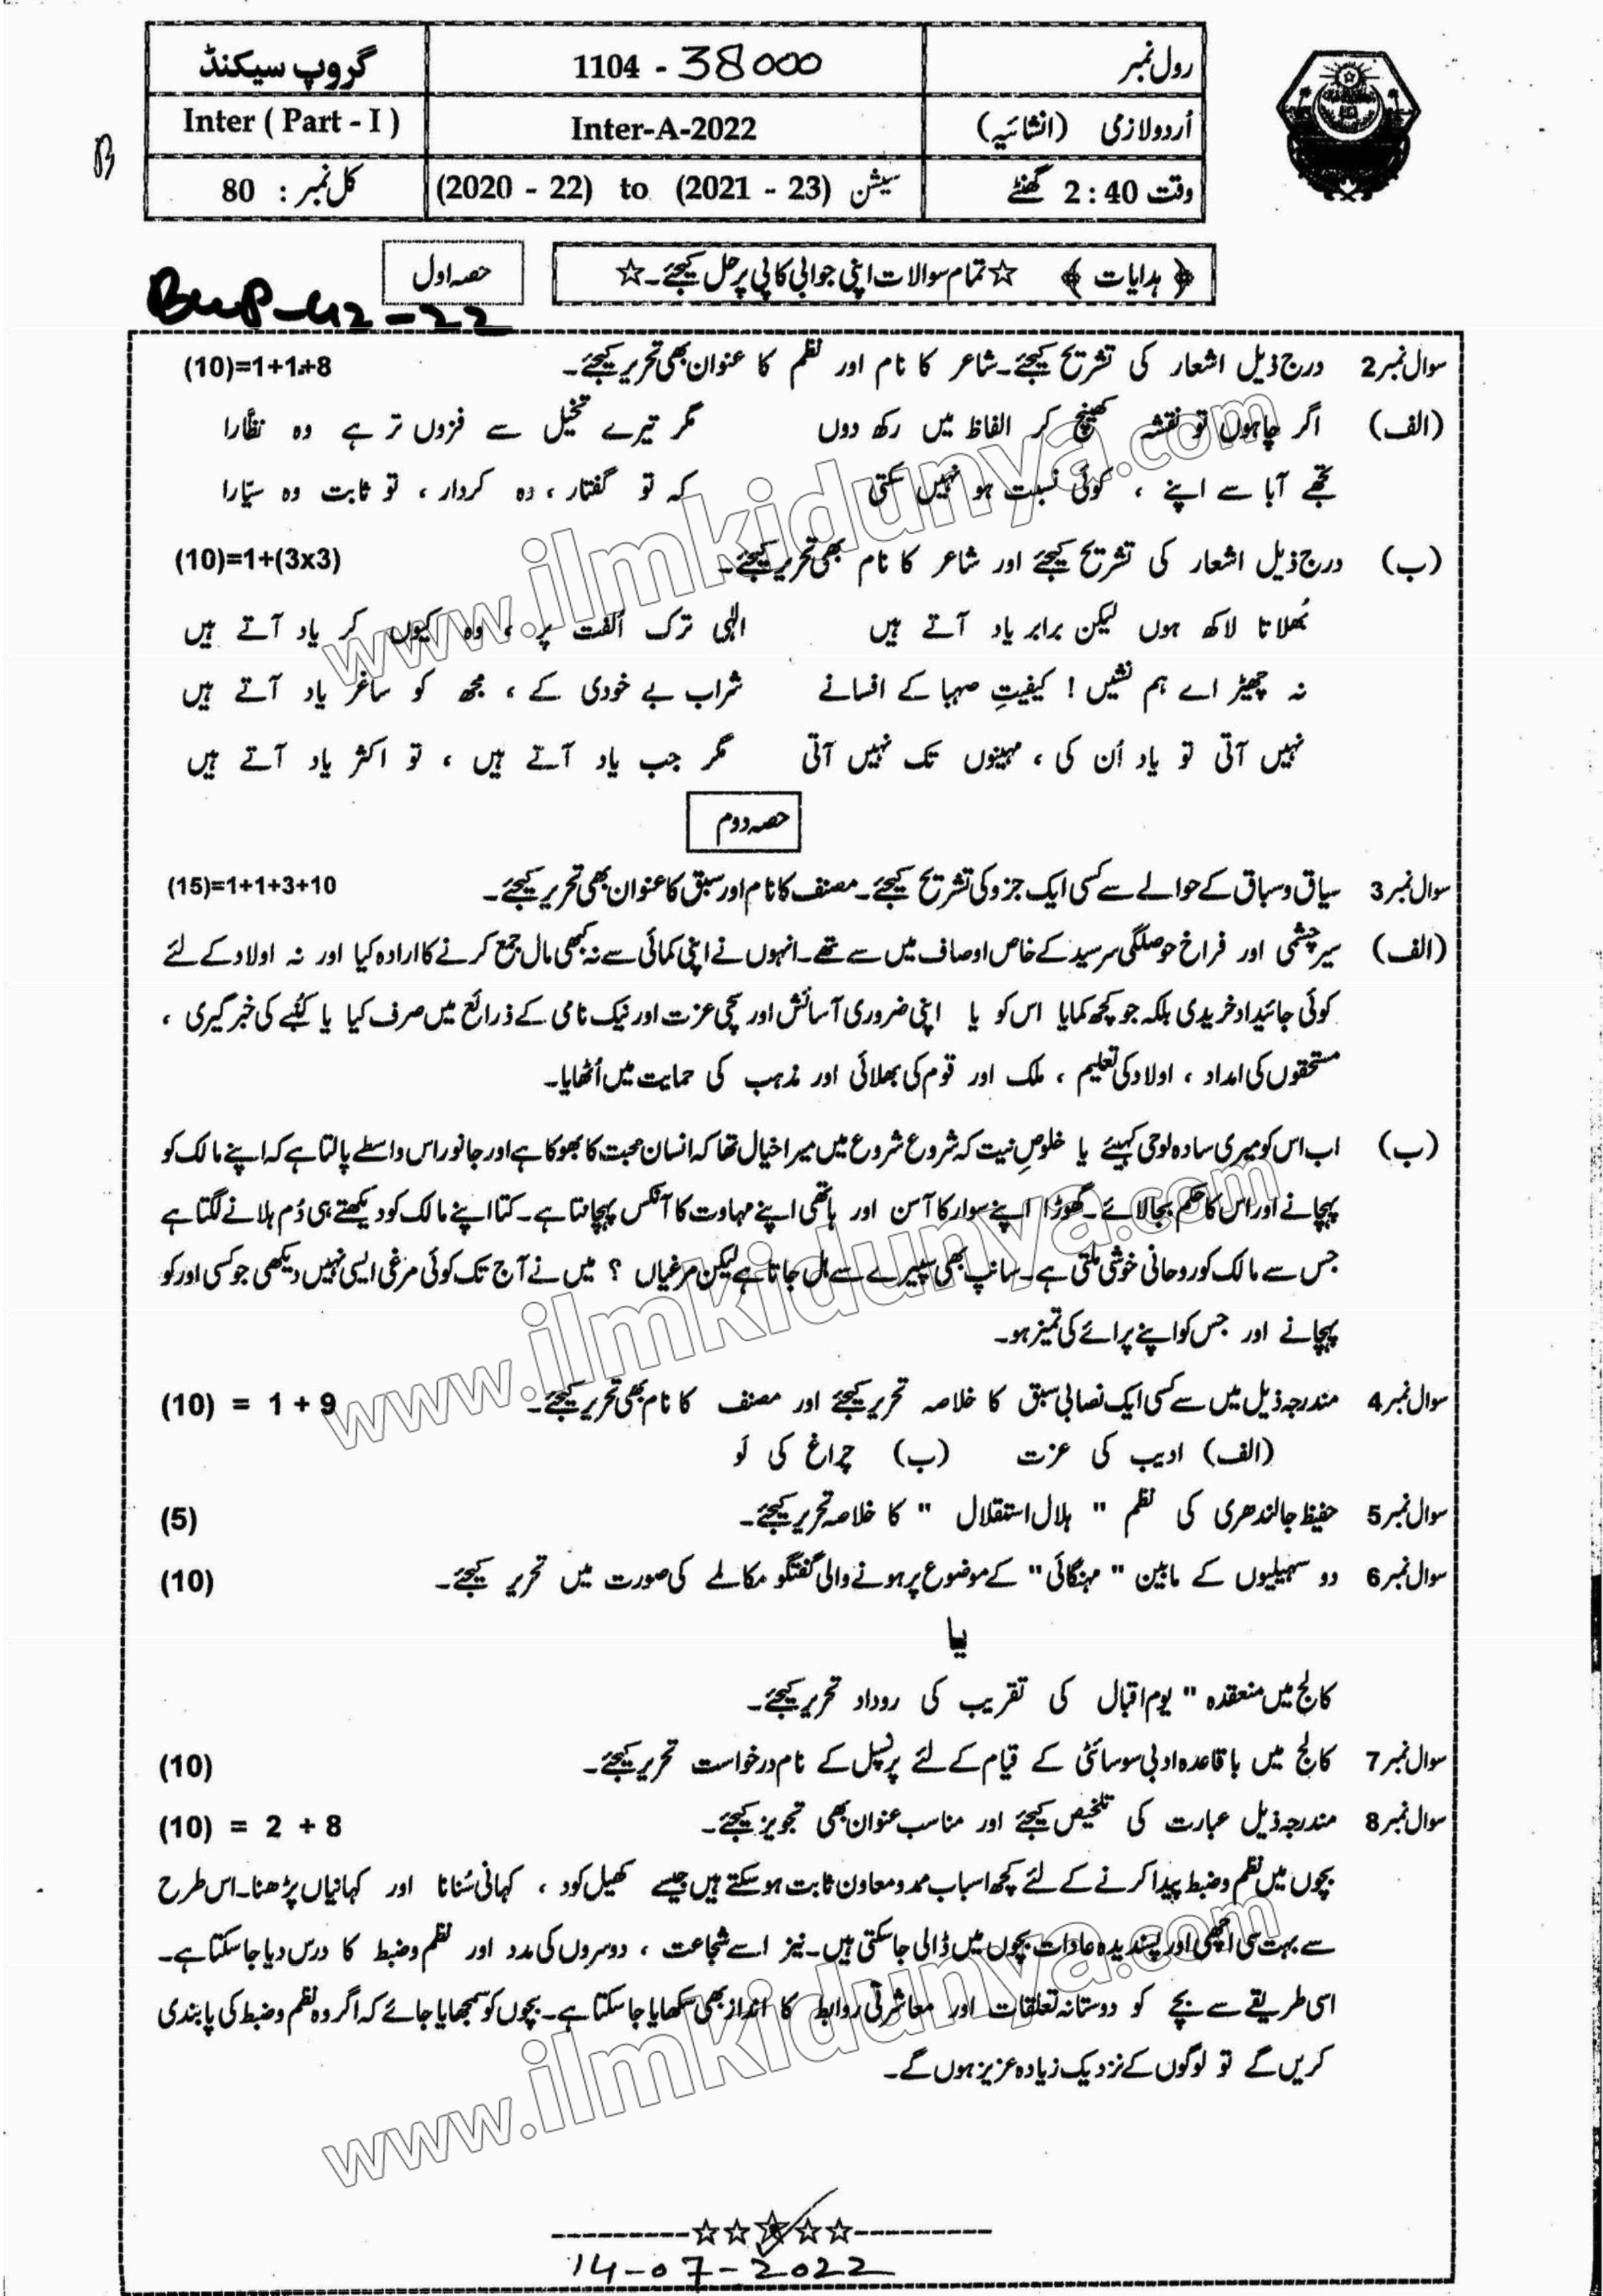 رول نمبر 1104 - 38000 گروپ سیکنڈ
اُردو لازمی (انشائیہ) Inter-A-2022 Inter ( Part - I )
وقت 2 : 40 گھنٹے سیشن (2020 - 22) to (2021 - 23) کل نمبر : 80
﴿ ہدایات ﴾ ☆ تمام سوالات اپنی جوابی کاپی پر حل کیجئے۔ ☆ حصہ اول
سوال نمبر 2 درج ذیل اشعار کی تشریح کیجئے۔ شاعر کا نام اور نظم کا عنوان بھی تحریر کیجئے۔ (10)=1+1+8
(الف) اگر چاہوں تو نقشہ کھینچ کر الفاظ میں رکھ دوں مگر تیرے تخیل سے فزوں تر ہے وہ نظّارا
تجھے آبا سے اپنے ، کوئی نسبت ہو نہیں سکتی کہ تو گفتار ، وہ کردار ، تو ثابت وہ سیّارا
(ب) درج ذیل اشعار کی تشریح کیجئے اور شاعر کا نام بھی تحریر کیجئے۔ (10)=1+(3x3)
بُھلاتا لاکھ ہوں لیکن برابر یاد آتے ہیں الٰہی ترک اُلفت پر ، وہ کیوں کر یاد آتے ہیں
نہ چھیڑ اے ہم نشیں ! کیفیتِ صہبا کے افسانے شراب بے خودی کے ، مجھ کو ساغر یاد آتے ہیں
نہیں آتی تو یاد اُن کی ، مہینوں تک نہیں آتی مگر جب یاد آتے ہیں ، تو اکثر یاد آتے ہیں
حصہ دوم
سوال نمبر 3 سیاق و سباق کے حوالے سے کسی ایک جزو کی تشریح کیجئے۔ مصنف کا نام اور سبق کا عنوان بھی تحریر کیجئے۔ (15)=1+1+3+10
(الف) سیر چشمی اور فراخ حوصلگی سرسید کے خاص اوصاف میں سے تھے۔ انہوں نے اپنی کمائی سے نہ کبھی مال جمع کرنے کا ارادہ کیا اور نہ اولاد کے لئے
کوئی جائیداد خریدی بلکہ جو کچھ کمایا اس کو یا اپنی ضروری آسائش اور سچی عزت اور نیک نامی کے ذرائع میں صرف کیا یا کُنبے کی خبر گیری ،
مستحقوں کی امداد ، اولاد کی تعلیم ، ملک اور قوم کی بھلائی اور مذہب کی حمایت میں اُٹھایا۔
(ب) اب اس کو میری سادہ لوحی کہیئے یا خلوصِ نیت کہ شروع شروع میں میرا خیال تھا کہ انسان محبت کا بھوکا ہے اور جانور اس واسطے پالتا ہے کہ اپنے مالک کو
پہچانے اور اس کا حکم بجا لائے۔ گھوڑا اپنے سوار کا آسن اور ہاتھی اپنے مہاوت کا آنکس پہچانتا ہے۔ کتا اپنے مالک کو دیکھتے ہی دُم ہلانے لگتا ہے
جس سے مالک کو روحانی خوشی ملتی ہے۔ سانپ بھی سپیرے سے ہل جاتا ہے لیکن مرغیاں ؟ میں نے آج تک کوئی مرغی ایسی نہیں دیکھی جو کسی اور کو
پہچانے اور جس کو اپنے پرائے کی تمیز ہو۔
سوال نمبر 4 مندرجہ ذیل میں سے کسی ایک نصابی سبق کا خلاصہ تحریر کیجئے اور مصنف کا نام بھی تحریر کیجئے۔ (10) = 1 + 9
(الف) ادیب کی عزت (ب) چراغ کی لَو
سوال نمبر 5 حفیظ جالندھری کی نظم " ہلال استقلال " کا خلاصہ تحریر کیجئے۔ (5)
سوال نمبر 6 دو سہیلیوں کے مابین " مہنگائی " کے موضوع پر ہونے والی گفتگو مکالمے کی صورت میں تحریر کیجئے۔ (10)
یا
کالج میں منعقدہ " یوم اقبال کی تقریب کی روداد تحریر کیجئے۔
سوال نمبر 7 کالج میں باقاعدہ ادبی سوسائٹی کے قیام کے لئے پرنسپل کے نام درخواست تحریر کیجئے۔ (10)
سوال نمبر 8 مندرجہ ذیل عبارت کی تلخیص کیجئے اور مناسب عنوان بھی تجویز کیجئے۔ (10) = 2 + 8
بچوں میں نظم و ضبط پیدا کرنے کے لئے کچھ اسباب ممد و معاون ثابت ہو سکتے ہیں جیسے کھیل کود ، کہانی سُنانا اور کہانیاں پڑھنا۔ اس طرح
سے بہت سی اچھی اور پسندیدہ عادات بچوں میں ڈالی جا سکتی ہیں۔ نیز اسے شجاعت ، دوسروں کی مدد اور نظم و ضبط کا درس دیا جا سکتا ہے۔
اسی طریقے سے بچے کو دوستانہ تعلقات اور معاشرتی روابط کا انداز بھی سکھایا جا سکتا ہے۔ بچوں کو سمجھایا جائے کہ اگر وہ نظم و ضبط کی پابندی
کریں گے تو لوگوں کے نزدیک زیادہ عزیز ہوں گے۔
14-07-2022
www.ilmkidunya.com
www.ilmkidunya.com
www.ilmkidunya.com